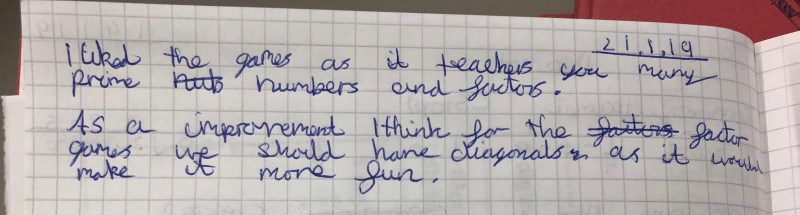 21.1.19
I liked the games as it teachers you many
prime numbers and factors.
As a improvement I think for the factors factor
games we should have diagonals as it would
make it more fun.